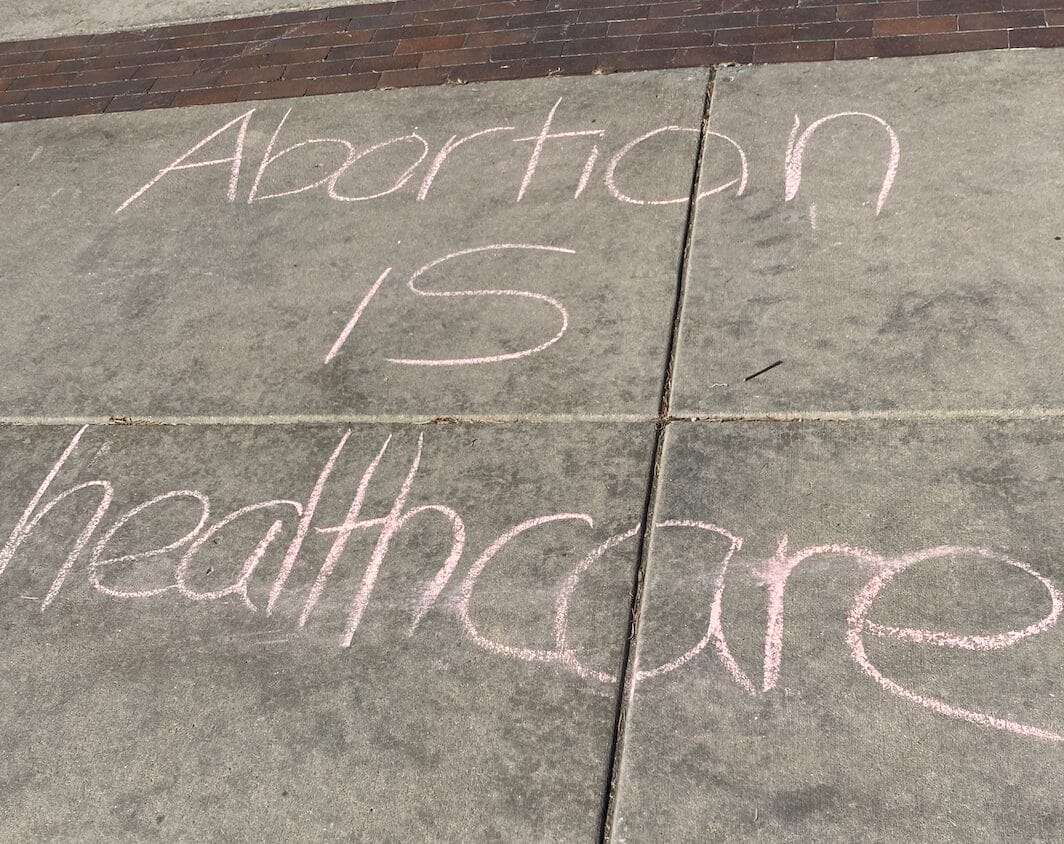 Abortion
is
healthcare